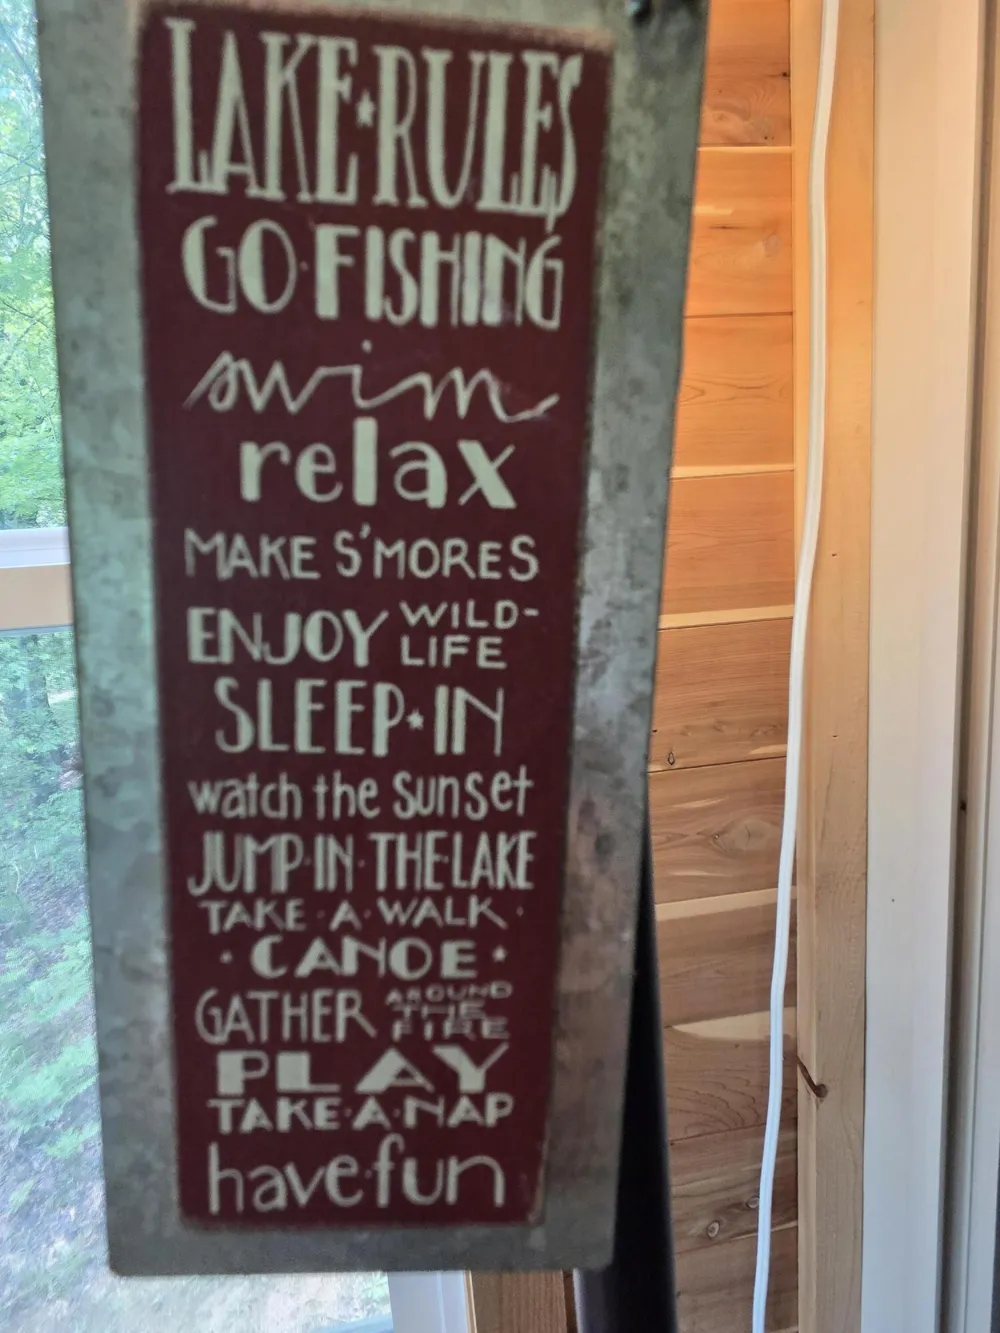 LAKE RULES
GO FISHING
swim
relax
MAKE S'MORES
ENJOY WILD-
LIFE
SLEEP IN
watch the sunset
JUMP·IN·THE·LAKE
TAKE·A·WALK·
·CANOE·
GATHER AROUND
THE
FIRE
PLAY
TAKE·A·NAP
have·fun